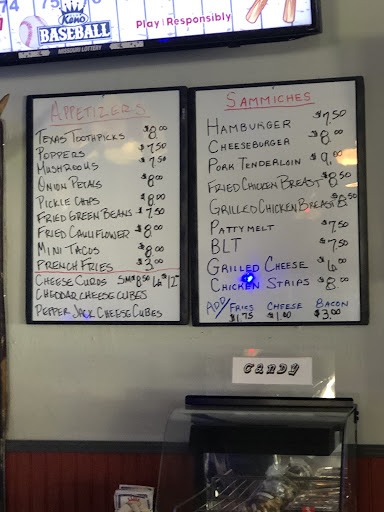 74
75
Keno
BASEBALL
MISSOURI LOTTERY
Play Responsibly
APPETIZERS
TEXAS TOOTHPICKS $8.00
POPPERS $7.50
MUSHROOMS $7.50
ONION PETALS $8.00
PICKLE CHIPS $8.00
FRIED GREEN BEANS $7.50
FRIED CAULIFLOWER $8.00
MINI TACOS $8.00
FRENCH FRIES $3.00
CHEESE CURDS SM $8.50 LG $12
CHEDDAR CHEESE CUBES
PEPPER JACK CHEESE CUBES
SAMMICHES
HAMBURGER $7.50
CHEESEBURGER $8.00
PORK TENDERLOIN $9.00
FRIED CHICKEN BREAST $8.50
GRILLED CHICKEN BREAST $8.50
PATTY MELT $7.50
BLT $7.50
GRILLED CHEESE $6.00
CHICKEN STRIPS $8.00
ADD/ FRIES CHEESE BACON
$1.75 $1.00 $3.00
CANDY